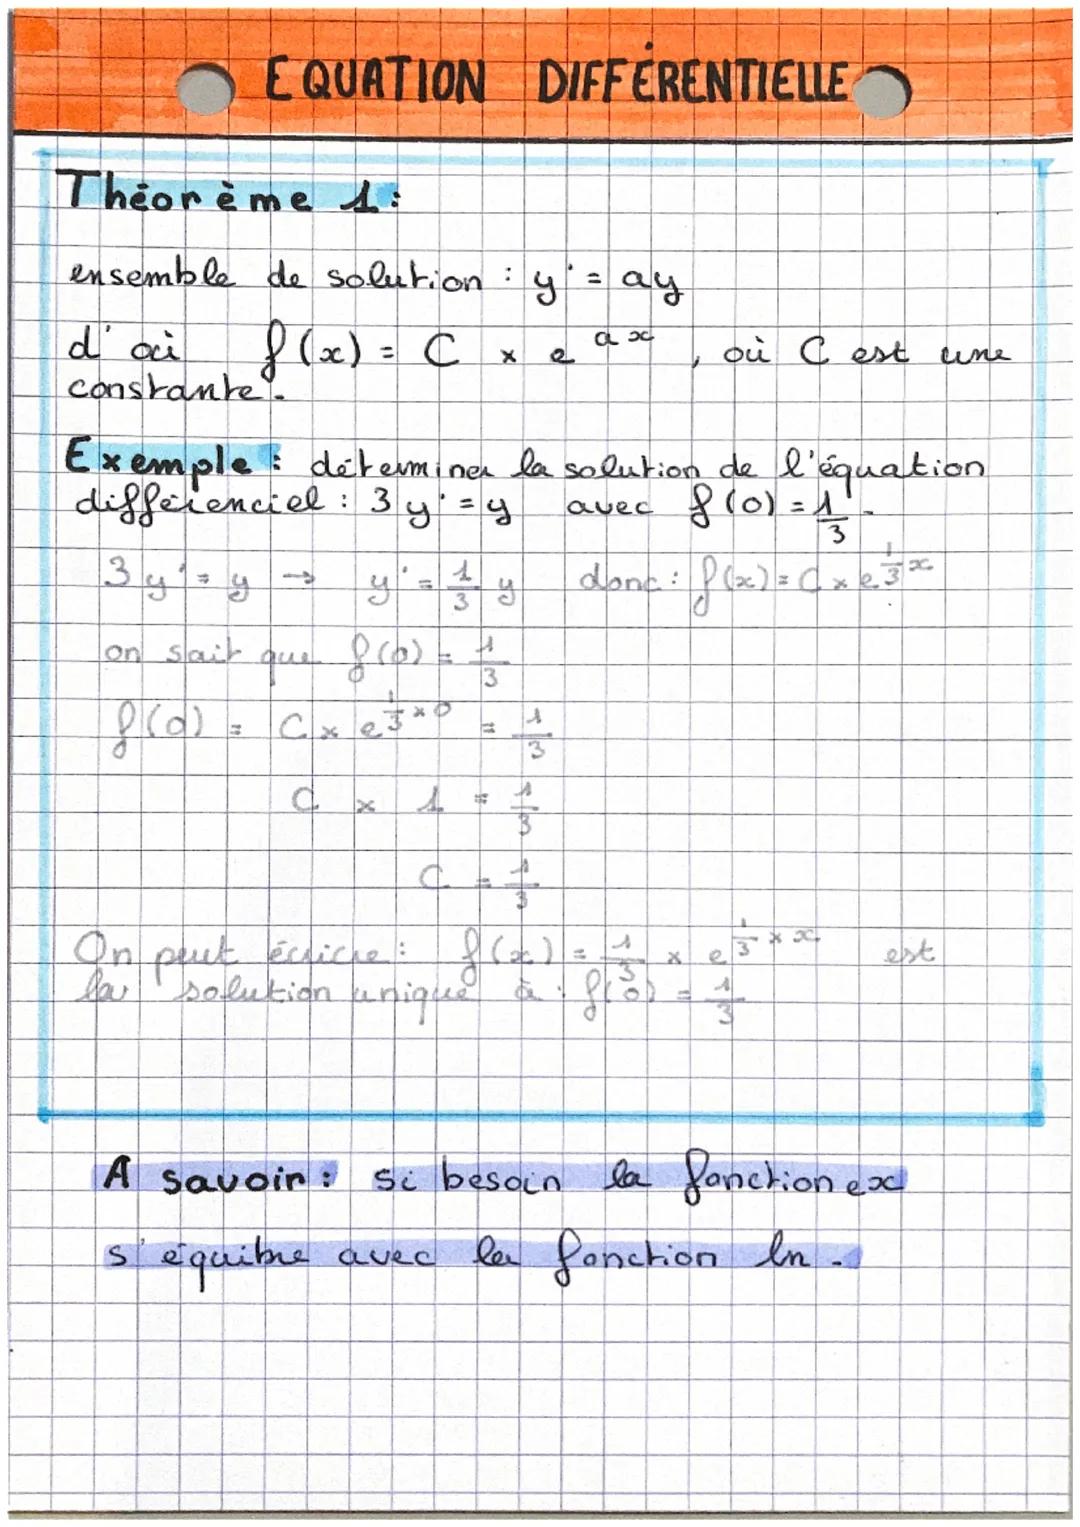 EQUATION DIFFÉRENTIELLE
Théorème 1 :
ensemble de solution : y' = ay
d'où f(x) = C × e^{ax}, où C est une
constante.
Exemple : déterminer la solution de l'équation
différenciel : 3y' = y avec f(0) = 1/3.
3y' = y → y' = 1/3 y donc : f(x) = C × e^{1/3 x}
on sait que f(0) = 1/3
f(0) = C × e^{1/3 × 0} = 1/3
C × 1 = 1/3
C = 1/3
On peut écrire : f(x) = 1/3 × e^{1/3 × x} est
la solution unique à : f(0) = 1/3
A savoir : si besoin la fonction ex
s'équibre avec la fonction ln.